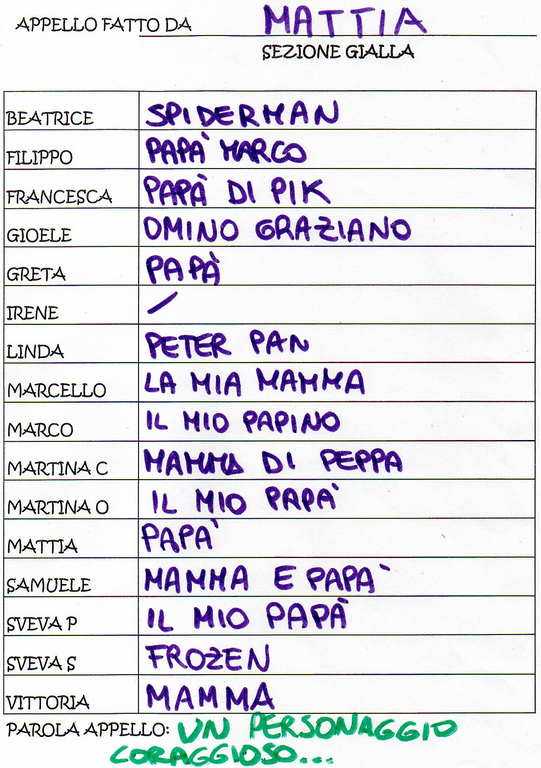 APPELLO FATTO DA MATTIA
SEZIONE GIALLA
BEATRICE SPIDERMAN
FILIPPO PAPA' MARCO
FRANCESCA PAPÀ DI PIK
GIOELE OMINO GRAZIANO
GRETA PAPÀ
IRENE /
LINDA PETER PAN
MARCELLO LA MIA MAMMA
MARCO IL MIO PAPINO
MARTINA C MAMMA DI PEPPA
MARTINA O IL MIO PAPA'
MATTIA PAPA'
SAMUELE MAMMA E PAPA'
SVEVA P IL MIO PAPÀ
SVEVA S FROZEN
VITTORIA MAMMA
PAROLA APPELLO: UN PERSONAGGIO
CORAGGIOSO...